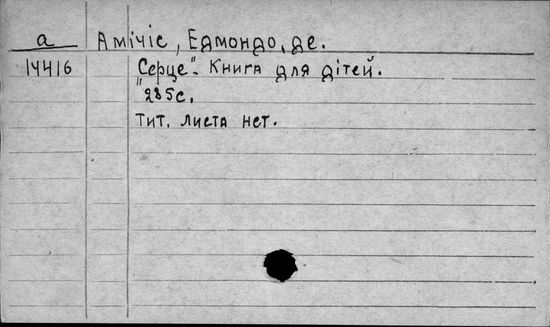 а Амічіс, Едмондо, де.
14416 „Серце". Книга для дітей.
285с.
Тит. листа нет.